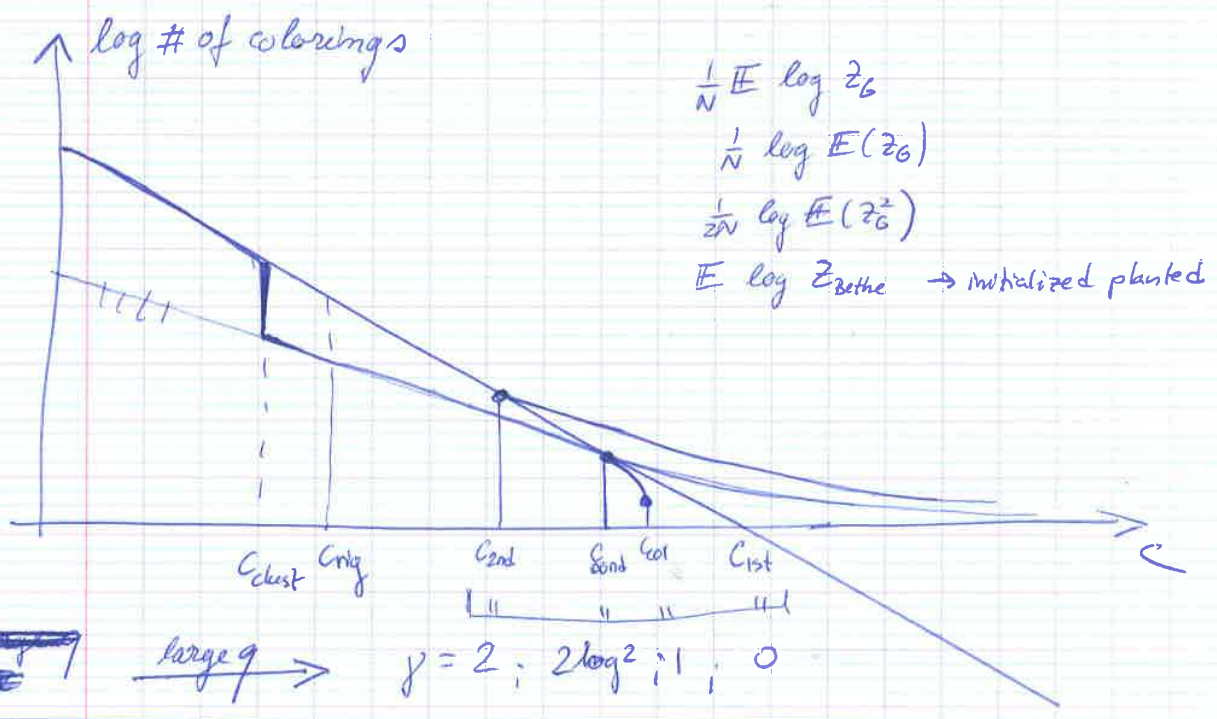 log # of colorings
1/N 𝔼 log Z_G
1/N log 𝔼(Z_G)
1/2N log 𝔼(Z_G^2)
𝔼 log Z_Bethe → initialized planted
C_clust C_rig C_2nd C_cond C_col C_1st C
large q → γ = 2 ; 2log2 ; 1 , 0